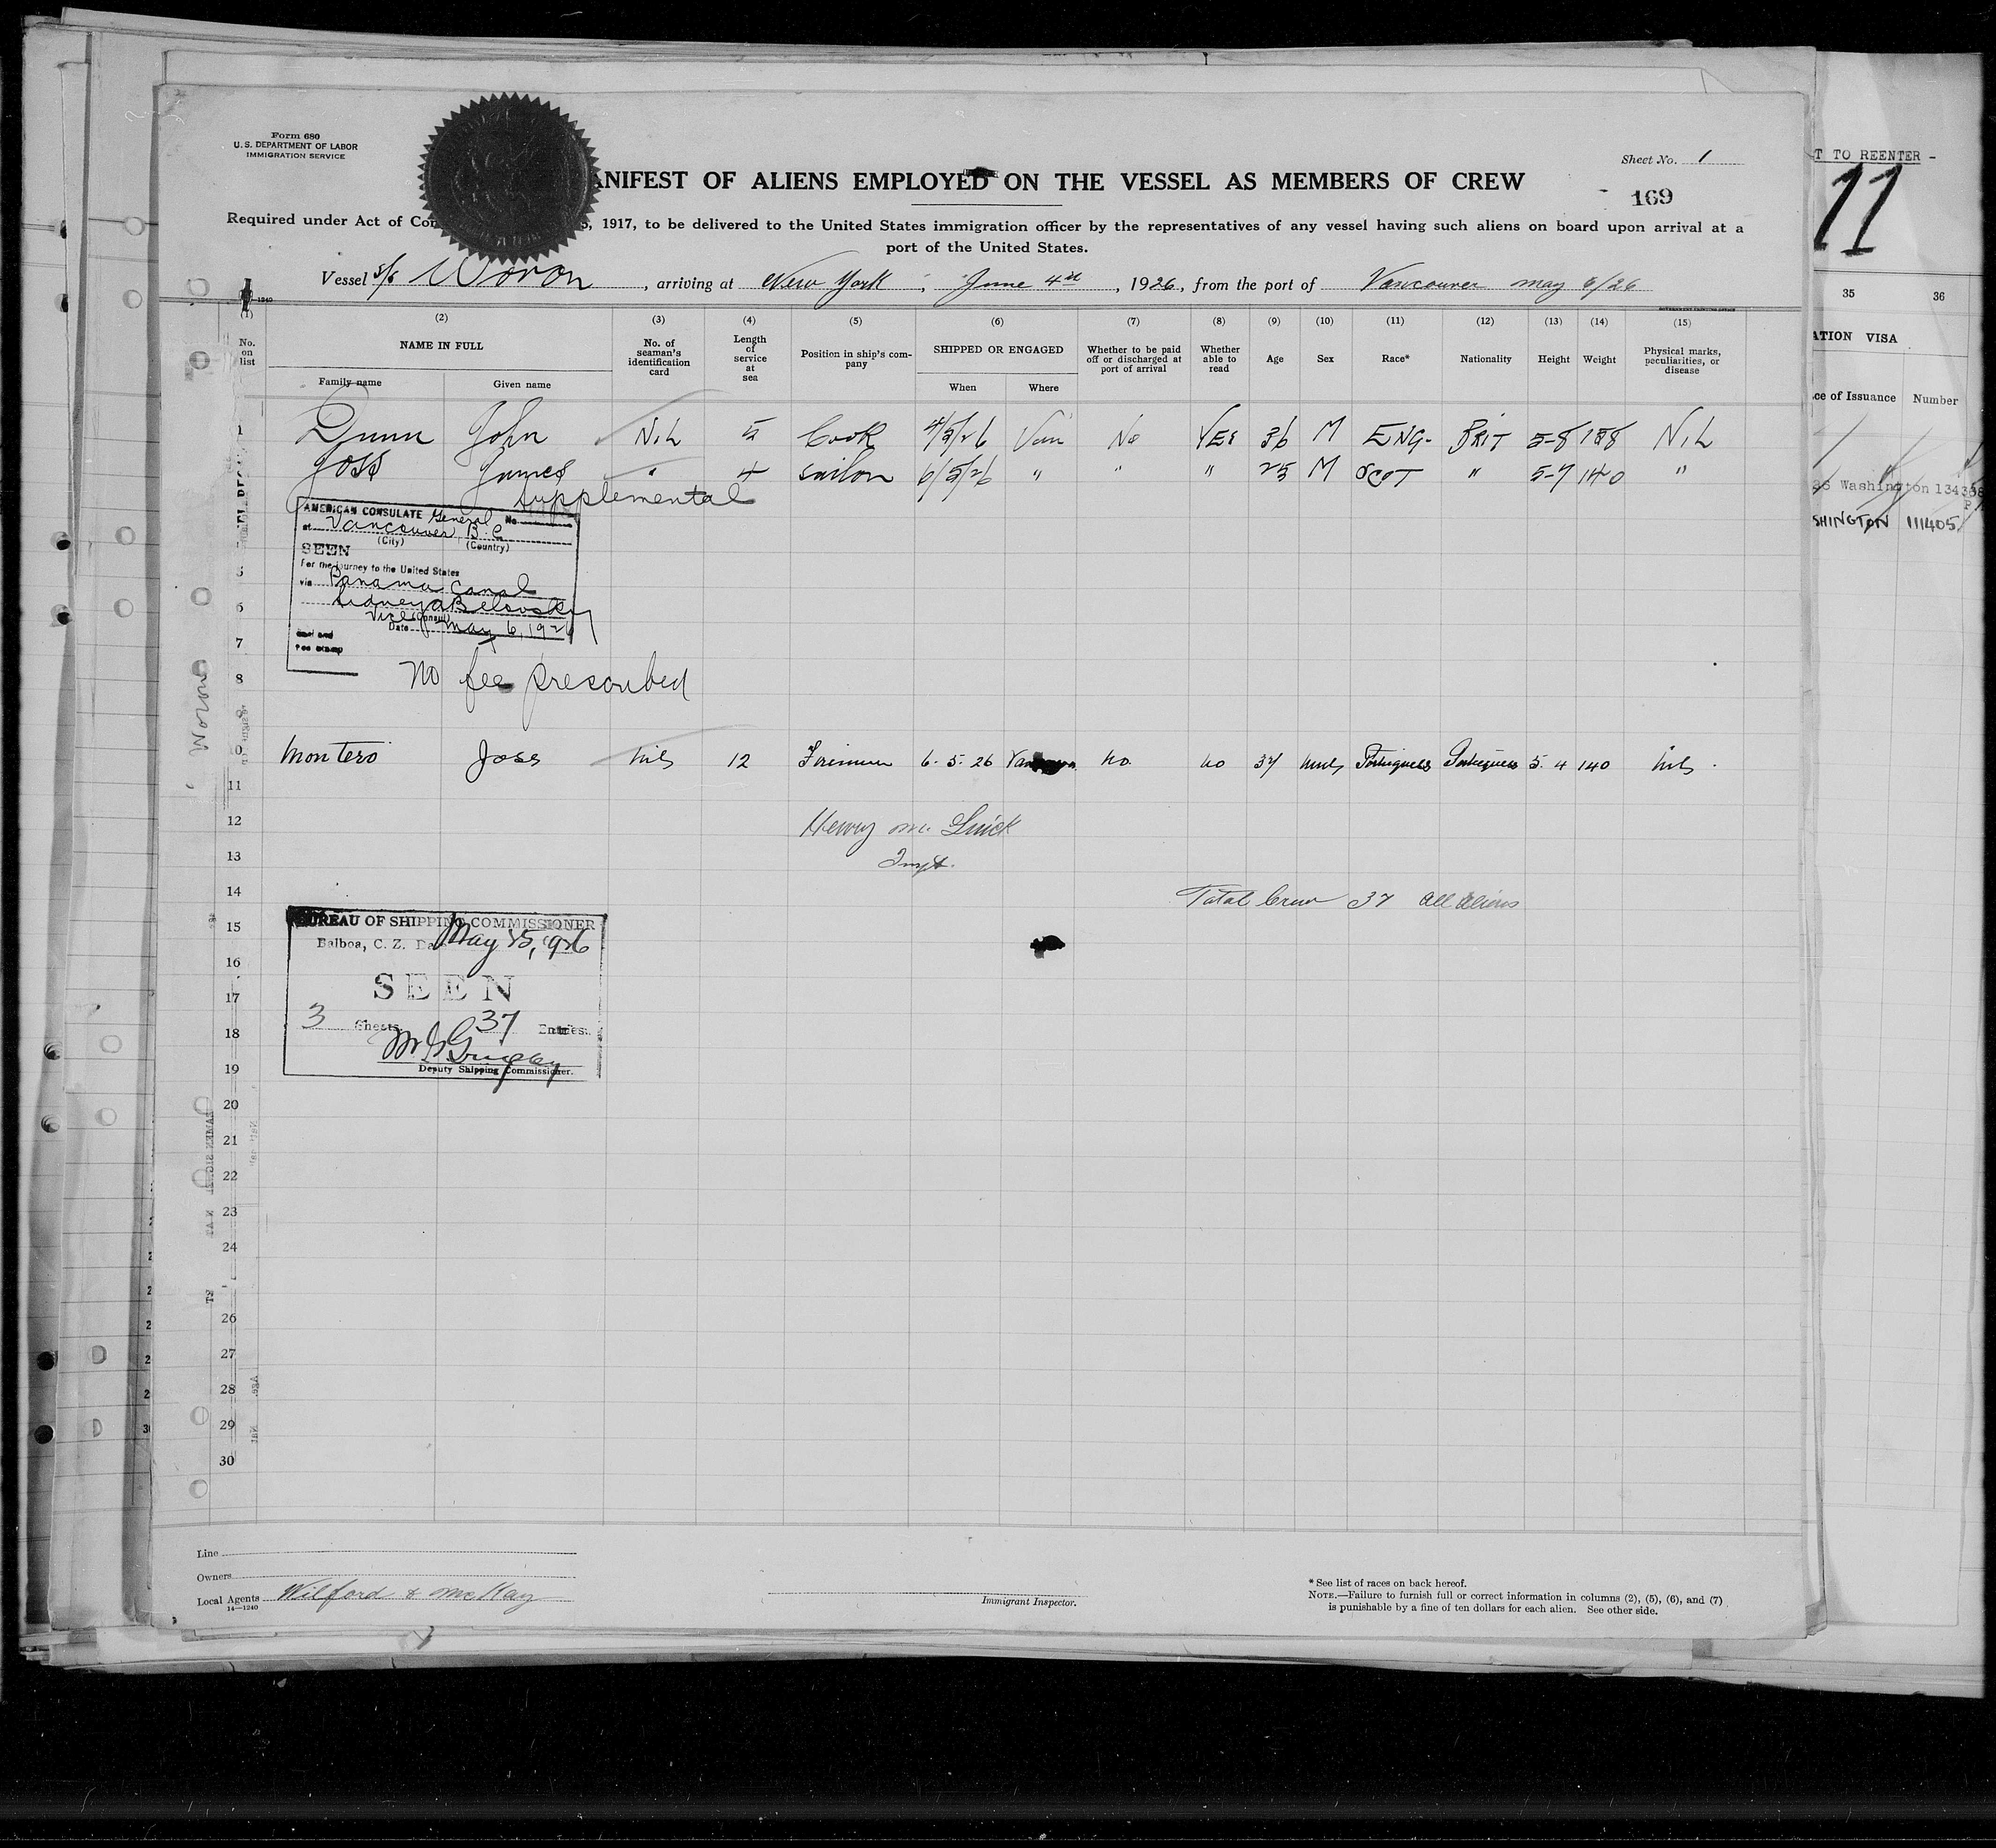 Form 680
U. S. DEPARTMENT OF LABOR
IMMIGRATION SERVICE
Sheet No. 1
ANIFEST OF ALIENS EMPLOYED ON THE VESSEL AS MEMBERS OF CREW
169
T TO REENTER -
11
Required under Act of Con 5, 1917, to be delivered to the United States immigration officer by the representatives of any vessel having such aliens on board upon arrival at a
port of the United States.
Vessel s/s Woron, arriving at New York, June 4th, 1926, from the port of Vancouver May 6/26
(1) (2) (3) (4) (5) (6) (7) (8) (9) (10) (11) (12) (13) (14) (15) 35 36
No. on list NAME IN FULL No. of seaman's identification card Length of service at sea Position in ship's company SHIPPED OR ENGAGED Whether to be paid off or discharged at port of arrival Whether able to read Age Sex Race* Nationality Height Weight Physical marks, peculiarities, or disease ATION VISA
Family name Given name When Where ce of Issuance Number
1 Dunn John Nil 5 Cook 4/5/26 Van No YES 36 M ENG- BRIT 5-8 188 NiL
Joss James " 4 sailor 6/5/26 " " " 25 M SCOT " 5-7 140 "
Supplemental
26 Washington 134368
SHINGTON 111405
AMERICAN CONSULATE General No.
at Vancouver, B. C.
(City) (Country)
SEEN
For the journey to the United States
via Panama Canal
Vice Consul
Date May 6, 1926
Fee stamp
6
7
8
No fee prescribed
Woron
10 Montero Jose nil 12 Fireman 6. 5. 26 no. no 37 male Portuguese Portuguese 5. 4 140 nil.
11
12 Henry
13 Inspt.
14 Total Crew 37 All aliens
15
BUREAU OF SHIPPING COMMISSIONER
Balboa, C. Z. Da May 25, 1926
16
SEEN
17
3 Sheets 37 Entries.
18
Deputy Shipping Commissioner.
19
20
21
22
23
24
26
27
28
29
30
Line
Owners
Local Agents Wilford & McKay
14—1240
Immigrant Inspector.
* See list of races on back hereof.
NOTE.—Failure to furnish full or correct information in columns (2), (5), (6), and (7)
is punishable by a fine of ten dollars for each alien. See other side.